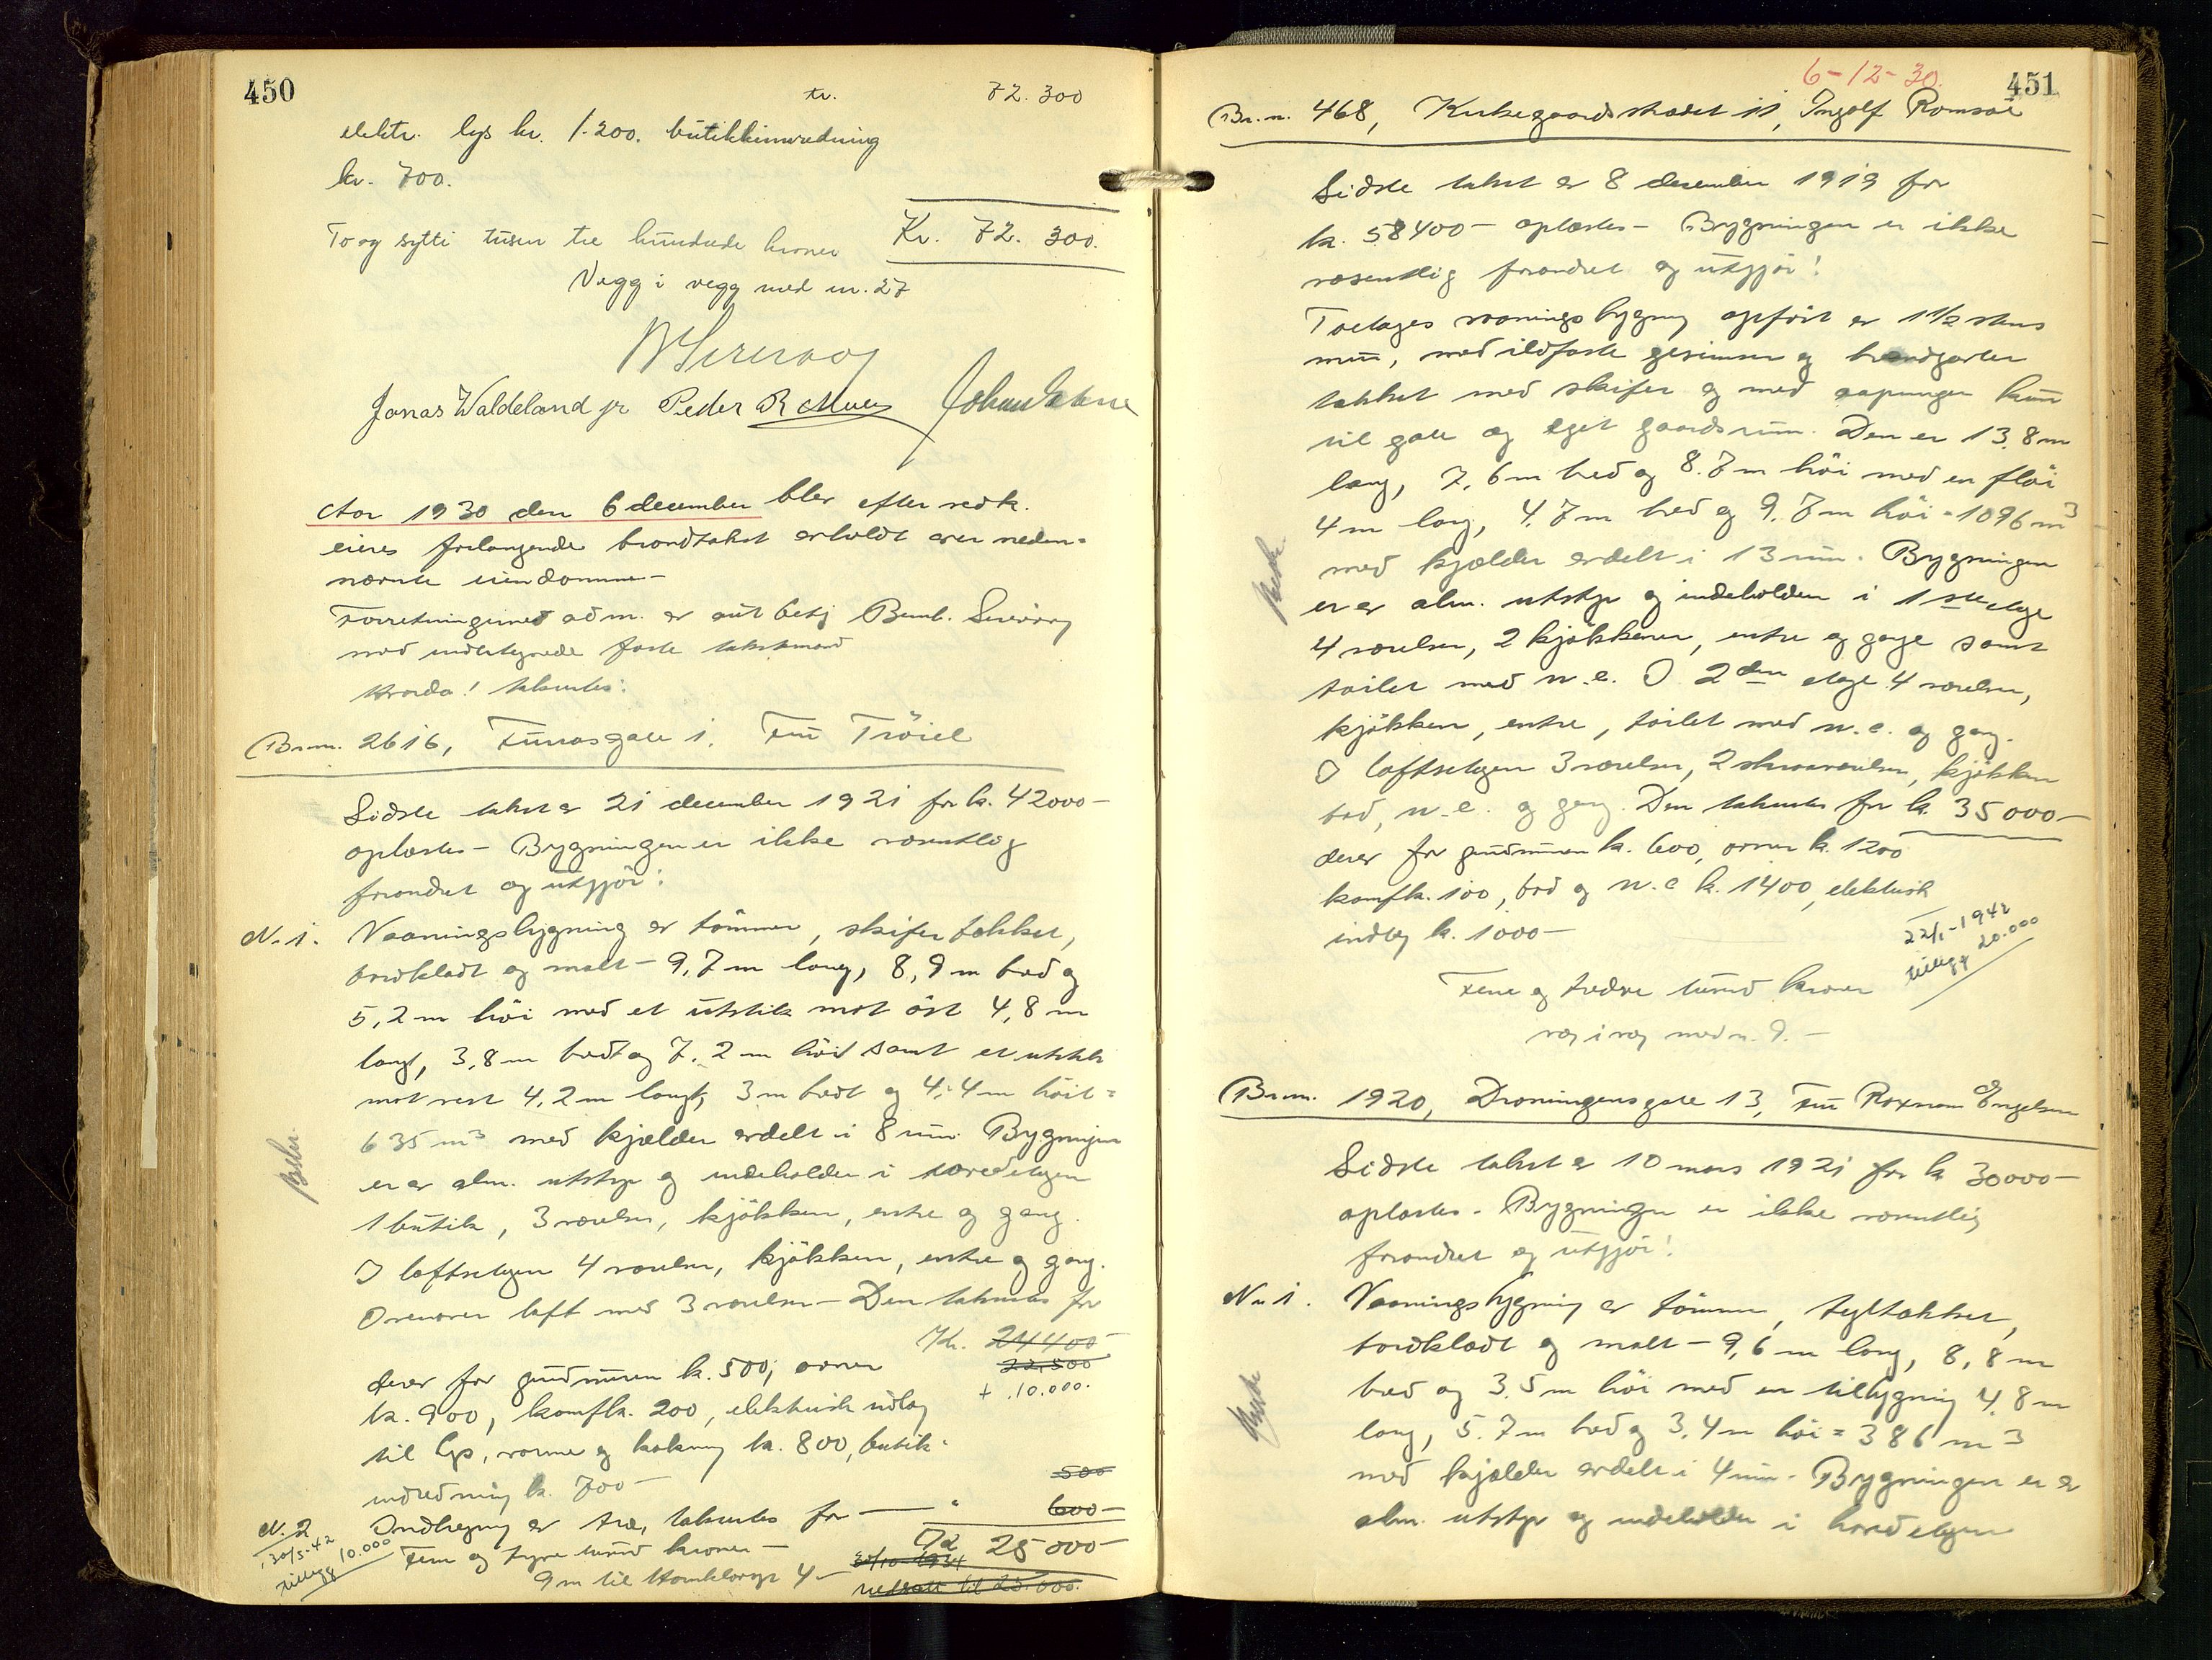 450
tr. 72.300
elektr. lys kr. 1.200. butikkinnredning
kr. 700.
To og sytti tusen tre hundrede kroner Kr. 72.300.
Vegg i vegg med nr. 27
Jonas Waldeland jr Peder R
Aar 1930 den 6 december blev efter vedk.
eieres forlangende brandtakst avholdt over neden-
nævnte eiendomme-
Forretningernes adm. er aut betj Bernh.
med undertegnede faste takstmænd
Hvorda! takseredes:
Br.nr. 2616, gate 1. Fru Tröiel
Sidste takst av 21 december 1921 for kr. 42000-
oplæstes - Bygningen er ikke væsentlig
forandret og utgjör:
N. 1. Vaaningsbygning av tömmer, skifertækket,
bordklædt og malt - 9,7 m lang, 8,9 m bred og
5,2 m höi med et utstik mot öst 4,8 m
langt, 3,8 m bredt og 7,2 m höit samt et utstik
mot vest 4,2 m langt, 3 m bredt og 4,4 m höit =
635 m3 med kjælder avdelt i 8 rum. Bygningen
er av alm. utstyr og indeholder i hovedetagen
1 butik, 3 værelser, kjökken, entre og gang.
I loftsetagen 4 værelser, kjökken, entre og gang.
Ovenover loft med 3 værelser - Den takseres for
Kr. 24400-
derav for grundmuren kr. 500, ovner 22,500
kr. 900, komfkr. 200, elektrisk indlæg + .10.000.
til lys, varme og kokning kr. 800, butik-
indredning kr. 700- 500
N. 2 Indhegning av træ, takseres for - " 600-
30/5-42 Fem og tyve tusind kroner - 25000-
tillegg 10.000
9 m til 4 - 30/10-1934
nedsatt til 23.000.
6-12-30. 451
Br.nr. 468, Kirkegaardsstrædet 11, Ingolf Romsöe
Sidste takst av 8 desember 1919 for
kr. 58400- oplæstes - Bygningen er ikke
væsentlig forandret og utgjör!
Toetages vaaningsbygning opfört av 1 1/2 stens
mur, med ildfaste gesimser og brandgavler
tækket med skifer og med aapninger kun
til gate og eget gaardsrum. Den er 13,8 m
lang, 7,6 m bred og 8,7 m höi med en flöi
4 m lang, 4,7 m bred og 9,7 m höi = 1096 m3
med kjælder avdelt i 13 rum. Bygningen
er av alm. utstyr og indeholder i 1ste etage
4 værelser, 2 kjökkener, entre og gange samt
toilet med w.c. I 2den etage 4 værelser,
kjökken, entre, toilet med w.c. og gang.
I loftsetagen 3 værelser, 2 skraaværelser, kjökken
bad, w.c. og gang. Den takseres for kr. 35000-
derav for grundmuren kr. 600, ovner kr. 1200
komfkr. 100, bad og w.c kr. 1400, elektrisk
indlæg kr. 1000-
22/1-1942
tillegg 20.000
Fem og tredve tusind kroner
væg i væg med nr. 9.-
Br.nr. 1920, Dronningensgate 13, Fru Engelsen
Sidste takst av 10 mars 1921 for kr 30000-
oplæstes - Bygningen er ikke væsentlig
forandret og utgjör!
Nr 1. Vaaningsbygning av tömmer, tegltækket,
bordklædt og malt - 9,6 m lang, 8,8 m
bred og 3,5 m höi med en tilbygning 4,8 m
lang, 5,7 m bred og 3,4 m höi = 386 m3
med kjælder avdelt i 4 rum. Bygningen er av
alm. utstyr og indeholder i hovedetagen